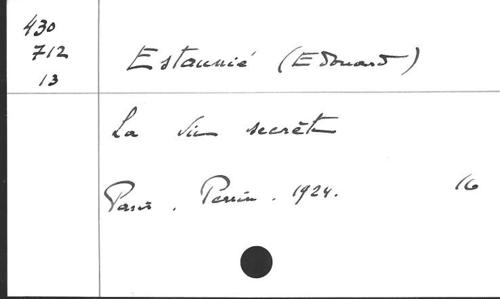 430
712
13
Estaunié (Edouard)
La vie secrète
Paris. Perrin. 1924. 16